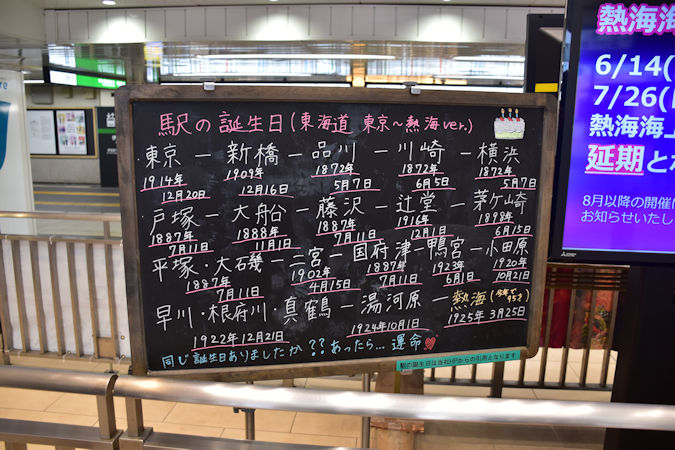 駅の誕生日(東海道 東京〜熱海ver.)
東京 ー 新橋 ー 品川 ー 川崎 ー 横浜
1914年 12月20日 1909年 12月16日 1872年 5月7日 1872年 6月5日 1872年 5月7日
戸塚 ー 大船 ー 藤沢 ー 辻堂 ー 茅ヶ崎
1887年 7月11日 1888年 11月1日 1887年 7月11日 1916年 12月1日 1898年 6月15日
平塚・大磯 ー 二宮 ー 国府津 ー 鴨宮 ー 小田原
1887年 7月11日 1902年 4月15日 1887年 7月11日 1923年 6月1日 1920年 10月21日
早川・根府川・真鶴 ー 湯河原 ー 熱海(今年で95才)
1922年12月21日 1924年10月1日 1925年3月25日
同じ誕生日ありましたか??あったら...運命
駅の誕生日は当社HPからの引用となります
熱海海
6/14(
7/26(
熱海海上
延期とな
8月以降の開催に
お知らせいたし